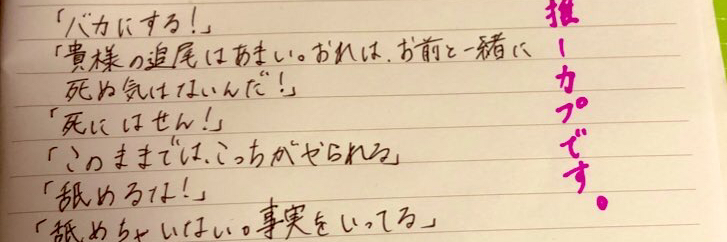 「バカにする!」
「貴様の追尾はあまい。おれは、お前と一緒に
死ぬ気はないんだ!」
「死にはせん!」
「このままでは、こっちがやられる」
「舐めるな!」
「舐めちゃいない。事実をいってる」
推しカプです。